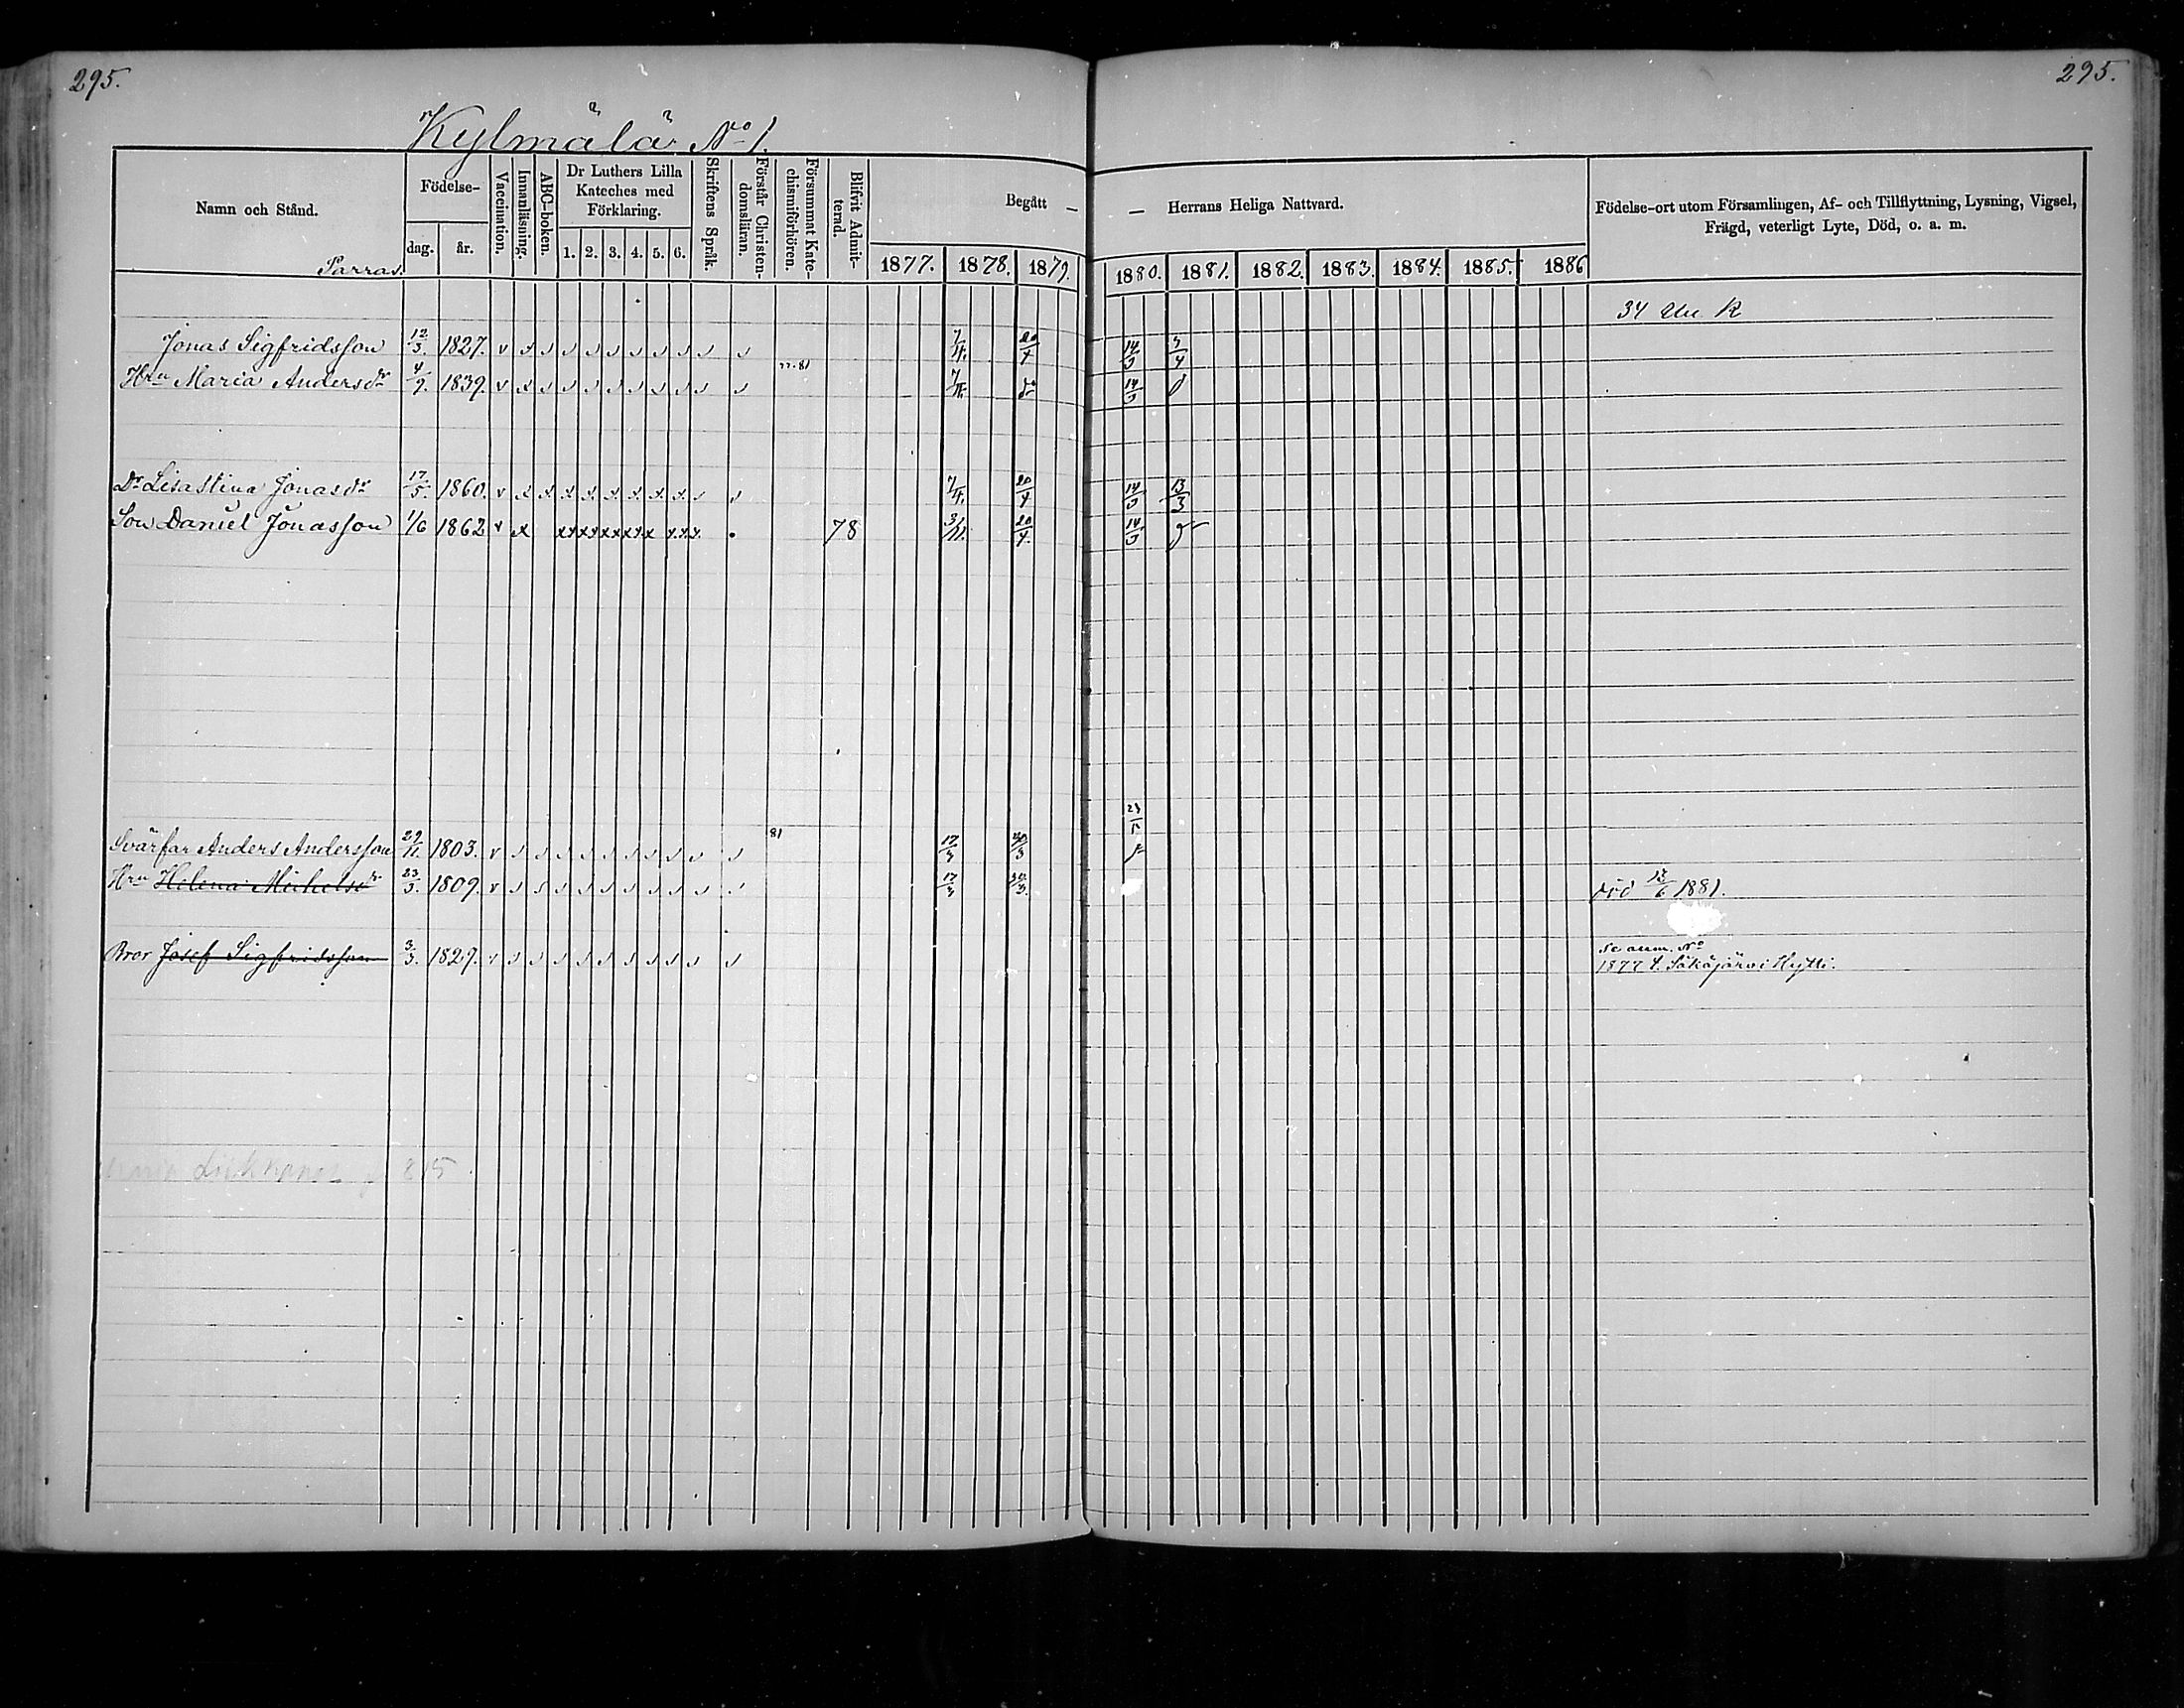 295. 295.
Kylmälä No 1.
Namn och Stånd.
Födelse-
dag. år.
Vaccination.
Innanläsning.
ABC-boken.
Dr Luthers Lilla Kateches med Förklaring.
1. 2. 3. 4. 5. 6.
Skriftens Språk.
Förstår Christen-domsläran.
Försummat Kate-chismiförhören.
Blifvit Admit-terad.
Begått — — Herrans Heliga Nattvard.
1877. 1878. 1879. 1880. 1881. 1882. 1883. 1884. 1885. 1886
Födelse-ort utom Församlingen, Af- och Tillflyttning, Lysning, Vigsel,
Frägd, veterligt Lyte, Död, o. a. m.
Sarras.
34 R
Jonas Sigfridsson 12/3. 1827. 7/4. 20/4 14/3 3/4
77-81
Hru Maria Andersdr 4/9. 1839. 7/4. do 14/3
Dr Lisastina Jonasdr 17/5. 1860. 7/4. 20/4 14/3 13/3
Son Daniel Jonasson 1/6 1862 78 3/11. 20/4. 14/3
81
Svärfar Anders Andersson 29/11. 1803. 17/3 30/3
Hru Helena Michelsdr 23/3. 1809. 17/3 30/3. död 12/6 1881.
Bror Josef Sigfridsson 3/3. 1829. Se anm. No
1877 f. Säkäjärvi Hytti.
815